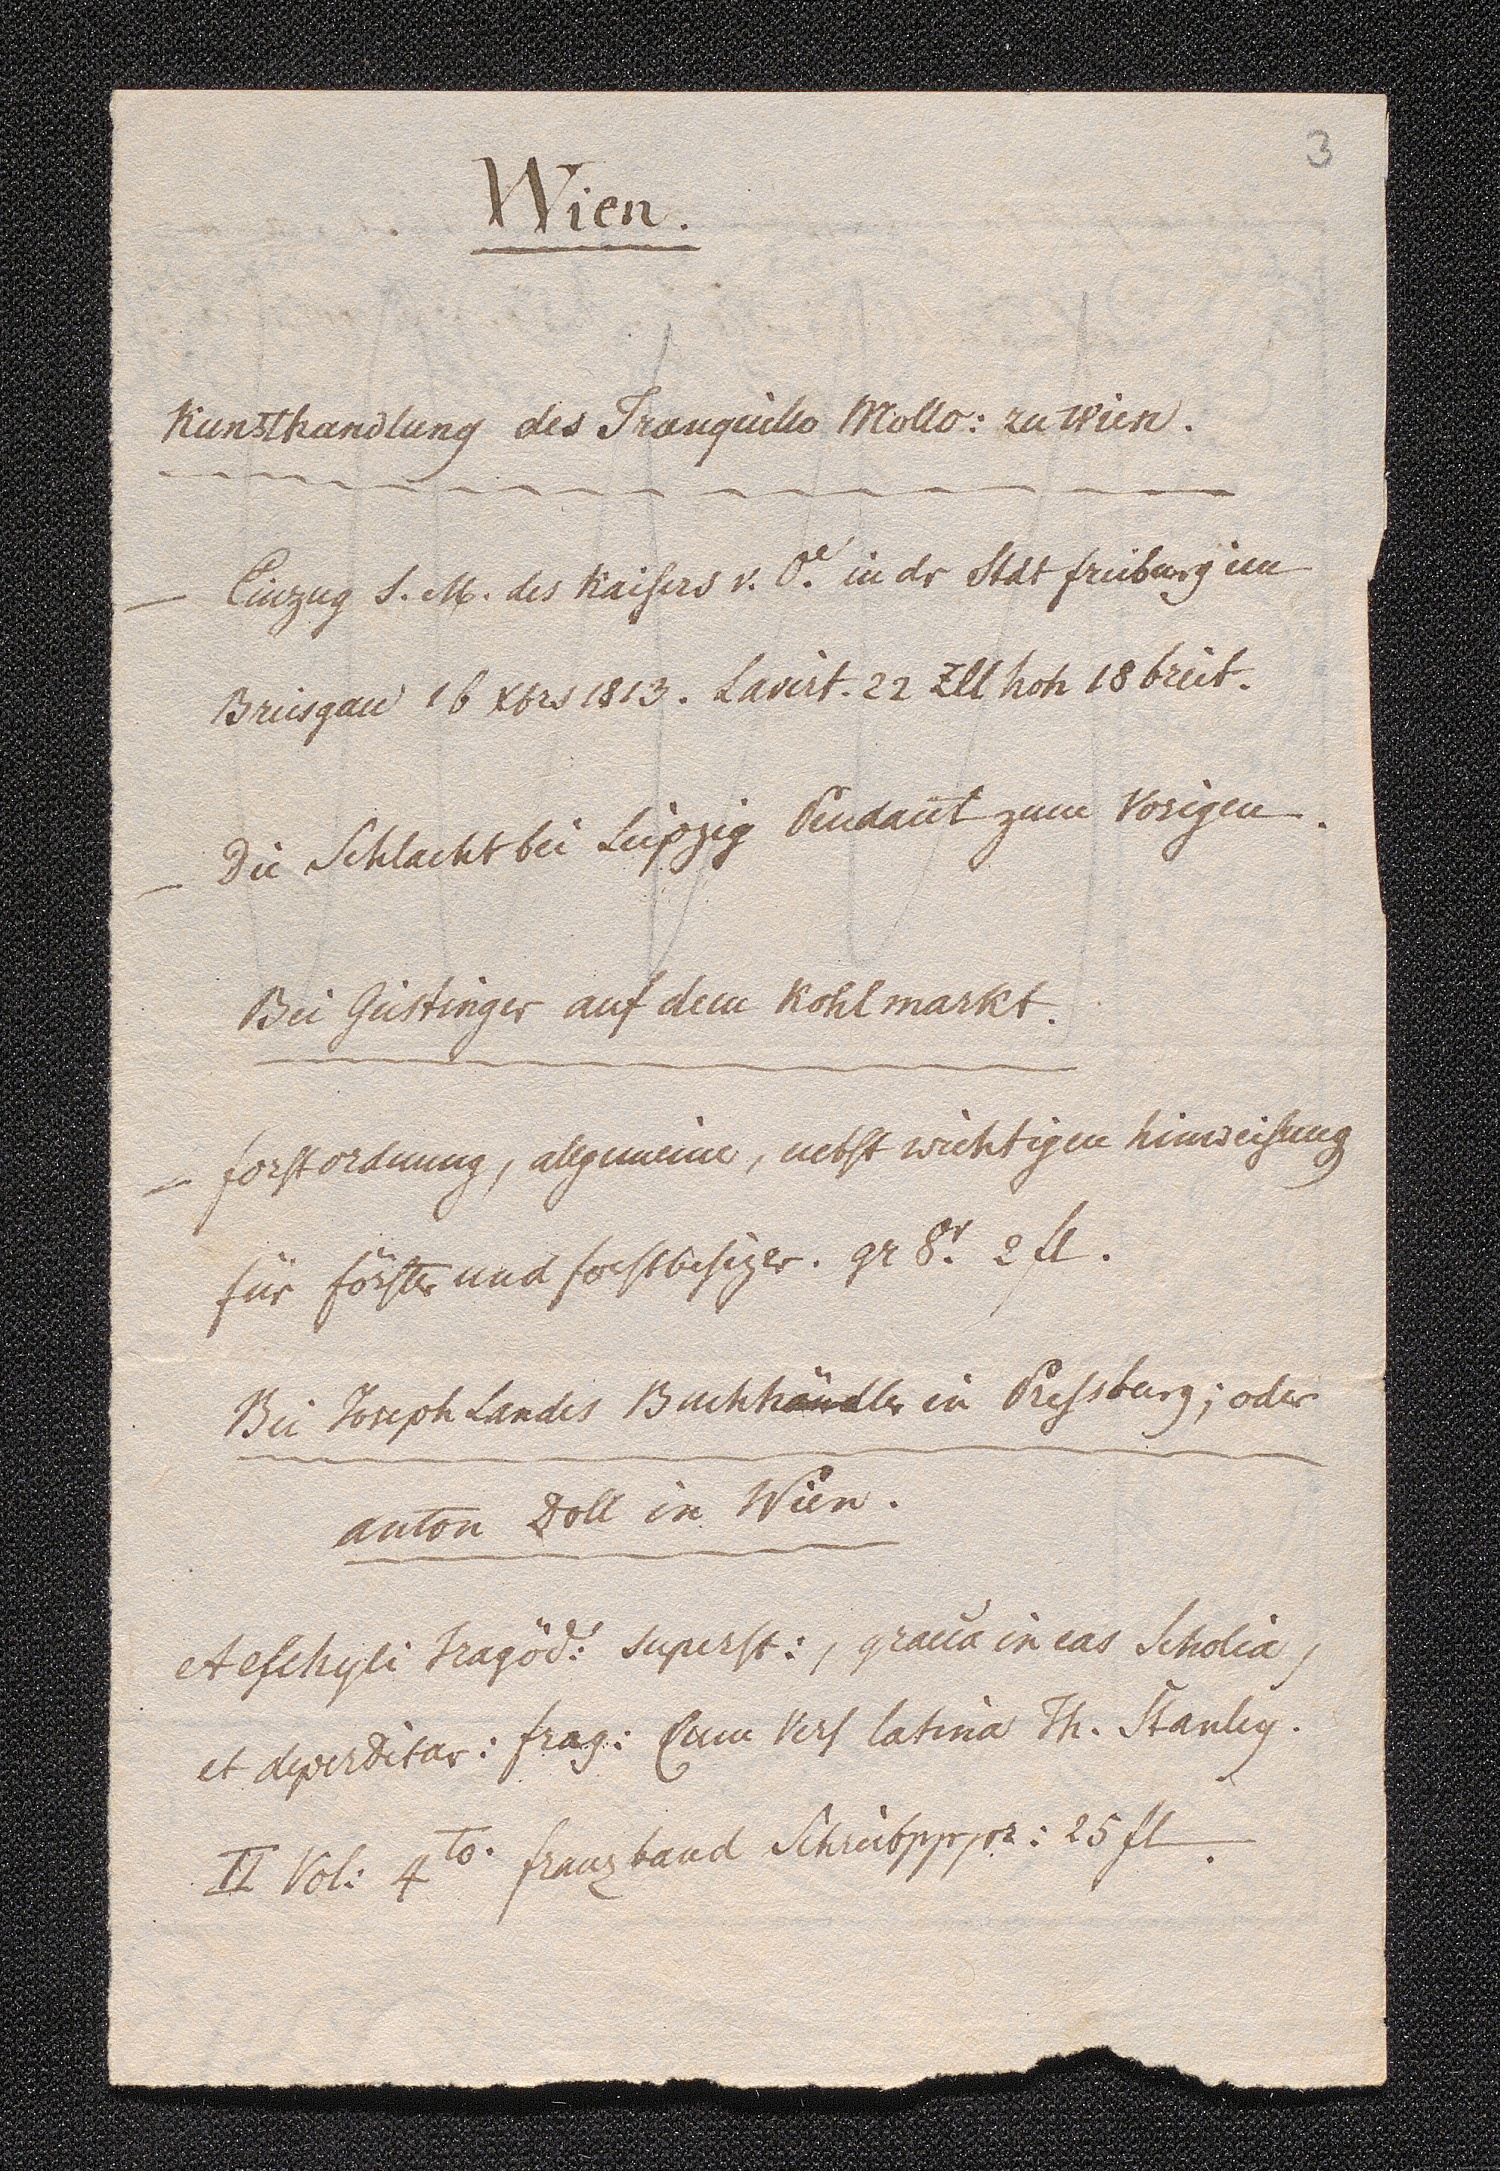 3
Wien.
Kunsthandlung des Tranquillo Mollo: zu Wien.
– Einzug S. M. des Kaisers v. Oe. in dr Stdt freiburg im
Breisgau 16 Xbrs 1813. Lavirt. 22 Zll hoh 18 breit.
– Die Schlacht bei Leipzig Pendant zum Vorigen.
Bei Geistinger auf dem Kohlmarkt.
– forstordnung, allgemeine, nebst wichtigen hinweisung
für förster und forstbesizer. gr 8r. 2 fl.
Bei Joseph Landes Buchhändler in Pressburg; oder
anton Doll in Wien.
Aeschyli Tragöd: superst:, graeca in eas Scholia,
et deperditar: frag: Cum Vers latina Th. Stanley.
II Vol: 4to. franzband Schreibppr: 25 fl.